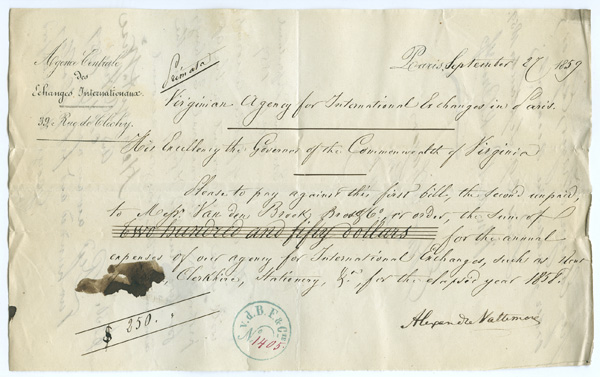 Agence Centrale
Des
Echanges Internationaux.
32, Rue de Clichy.
Primata
Paris, September 27 1859
Virginian Agency for International Exchanges in Paris.
His Excellency the Governor of the Commonwealth of Virginia
Please to pay against this first bill, the second unpaid,
to Mess. Van den Broek, Bros & Co, or order, the sum of
two hundred and fifty dollars for the annual
expenses of our agency for International Exchanges, such as, Rent
Clerkhire, Stationery, &c, for the elapsed year 1858.
$ 250.
V.d.B.F. & Cie
No 1405
Alexandre Vattemare